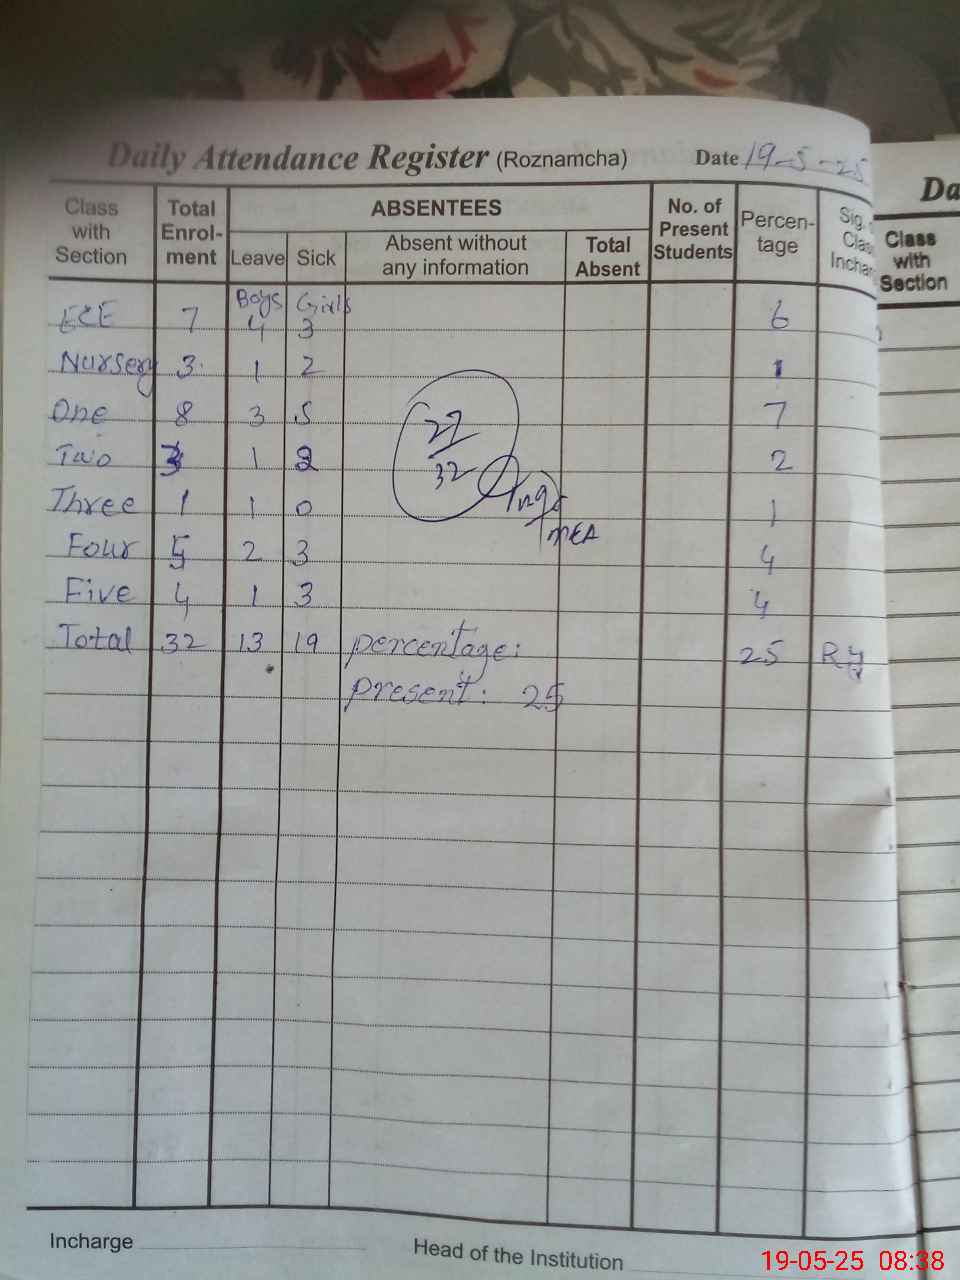 Daily Attendance Register (Roznamcha) Date 19-5-25
Class with Section Total Enrol-ment ABSENTEES No. of Present Students Percen-tage Sig. Class Inchar
Leave Sick Absent without any information Total Absent
Boys Girls
ECE 7 4 3 6
Nursery 3 1 2 1
One 8 3 5 7
Two 3 1 2 2
Three 1 1 0 1
Four 5 2 3 4
Five 4 1 3 4
Total 32 13 19 percentage: 25
present: 25
32
MEA
Incharge
Head of the Institution
Da
Class with Section
19-05-25 08:38